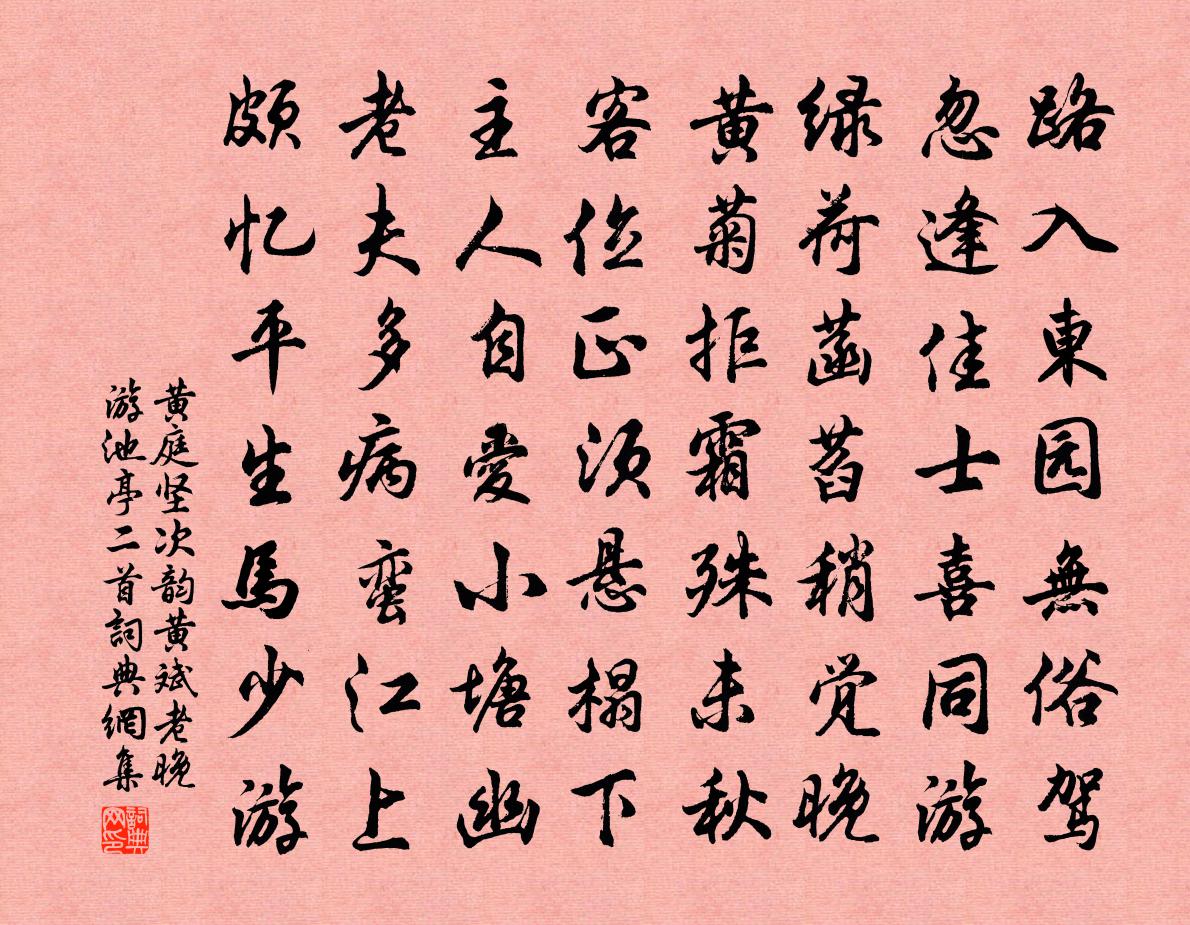 路入東园無俗驾
忽逢佳士喜同游
绿荷菡萏稍觉晚
黄菊拒霜殊未秋
客位正须悬榻下
主人自愛小塘幽
老夫多病蛮江上
颇忆平生馬少游
黄庭坚次韵黄斌老晚
游池亭二首詞典網集
詞典网印